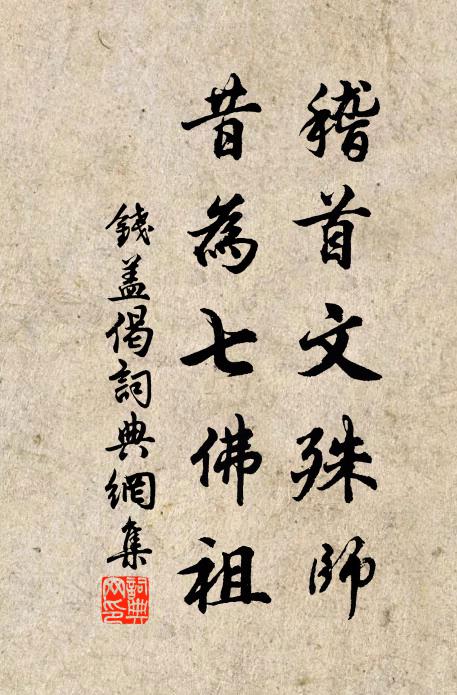 稽首文殊師
昔為七佛祖
錢蓋偈詞典網集
詞典
网印